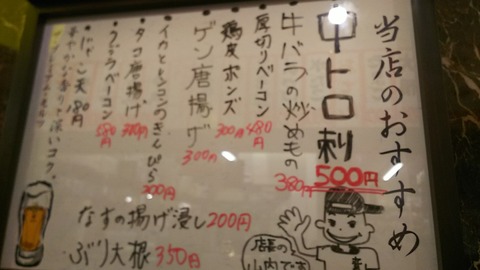 当店のおすすめ
中トロ刺 500円
牛バラの炒めもの 380円
厚切りベーコン 480円
鶏皮ポンズ 300円
ゲソ唐揚げ 300円
イカとレンコンのきんぴら 300円
タコ唐揚げ 300円
クジラベーコン 580円
じゃこ天 180円
華やかな香りで深いコク。
なすの揚げ浸し 200円
ぶり大根 350円
店長の
山内です